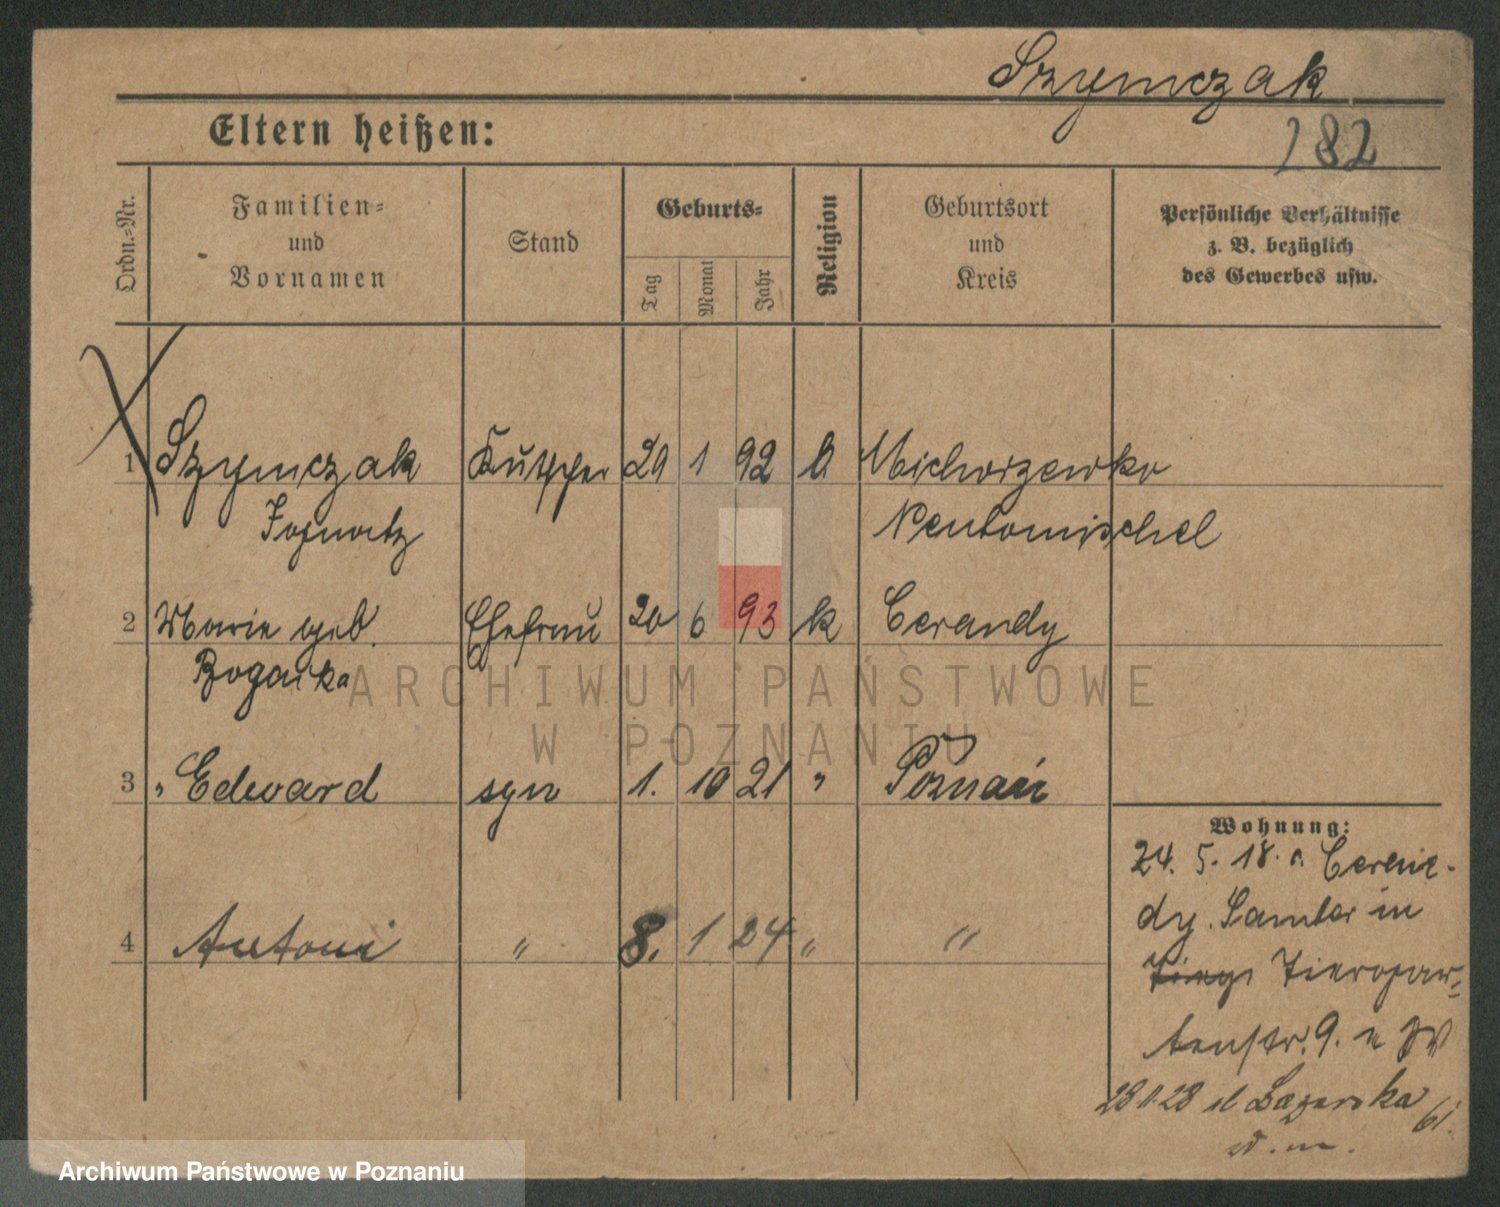 Szymczak
Eltern heißen:
182
Ordn.-Nr.
Familien-
und
Vornamen
Stand
Geburts-
Tag
Monat
Jahr
Religion
Geburtsort
und
Kreis
Persönliche Verhältnisse
z. B. bezüglich
des Gewerbes usw.
1 Szymczak Kutscher 29 1 92 k Michorzewko
Ignatz Neutomischel
2 Marie geb. Ehefrau 20 6 93 k Cerandy
3 " Edward syn 1. 10 21 " Poznań
Wohnung:
24. 5. 18.
4 Antoni " 8. 1 24 " "
dy. Samter in
Tiergar-
tenstr. 9.
28 11 28 ul Łazarska 61.
ARCHIWUM PAŃSTWOWE
W POZNANIU
Archiwum Państwowe w Poznaniu